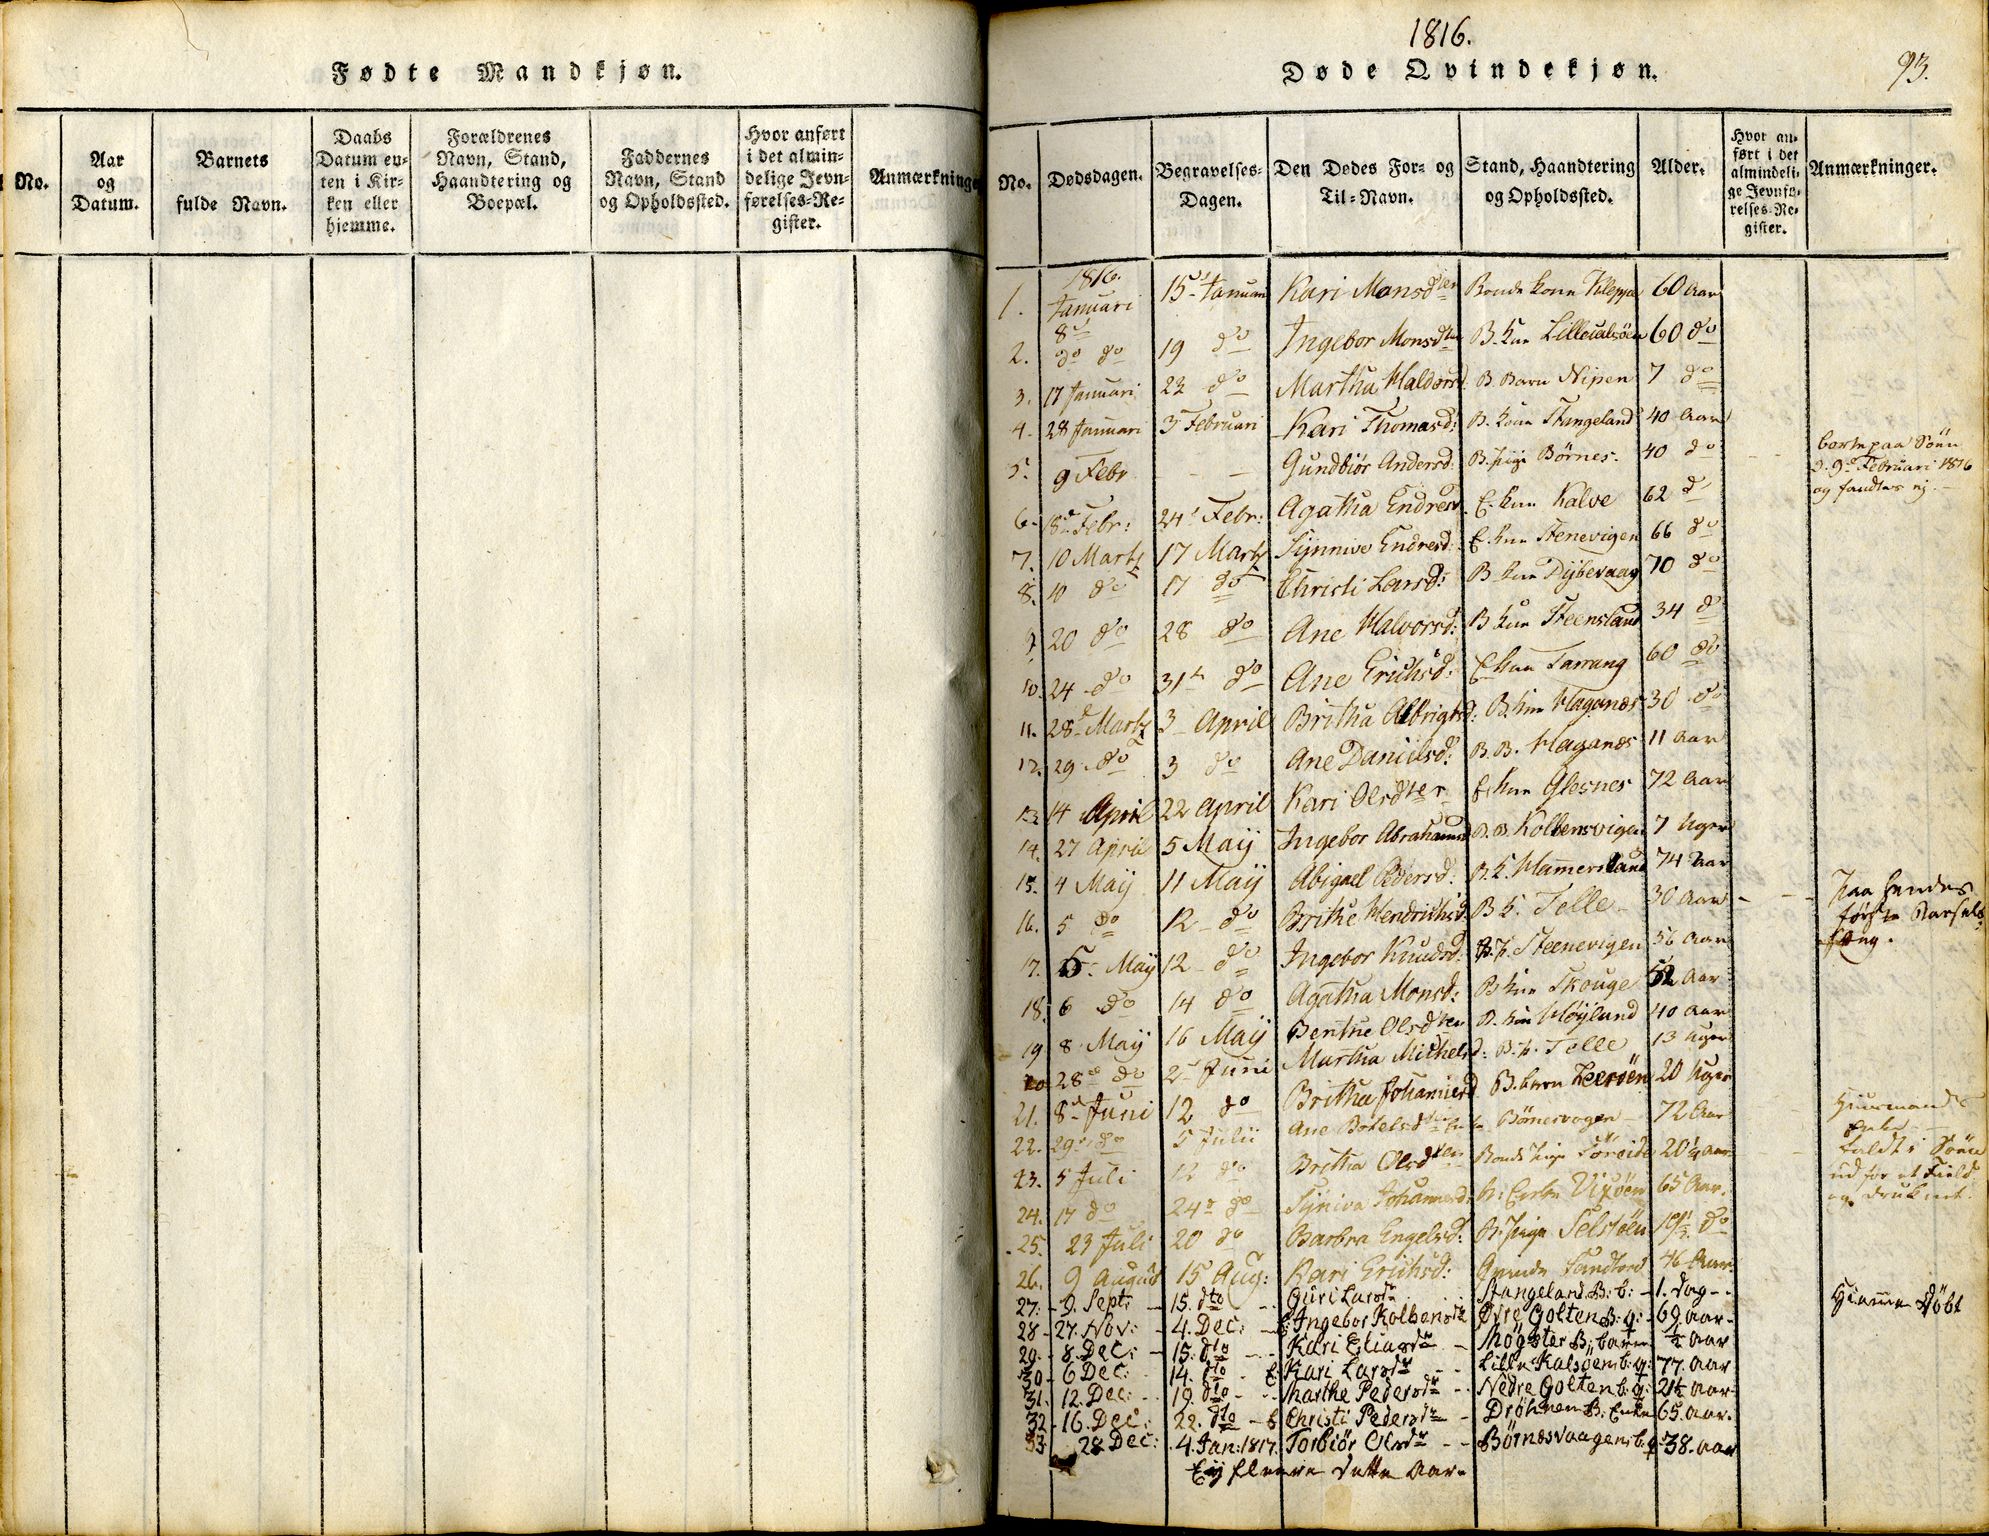 Fødte Mandkjøn.
No.
Aar
og
Datum.
Barnets
fulde Navn.
Daabs
Datum en-
ten i Kir-
ken eller
hjemme.
Forældrenes
Navn, Stand,
Haandtering og
Boepæl.
Faddernes
Navn, Stand
og Opholdssted.
Hvor anført
i det almin-
delige Jevn-
førelses-Re-
gister.
Anmærkninge
1816.
Døde Qvindekjøn.
93.
No.
Dødsdagen.
Begravelses-
Dagen.
Den Dødes For- og
Til-Navn.
Stand, Haandtering
og Opholdssted.
Alder.
Hvor an-
ført i det
almindeli-
ge Jevnfø-
relses-Re-
gister.
Anmærkninger.
1816.
1. Januari 8de 15 Januari Kari Monsdter Bonde kone Kleppe 60 Aar
2. do do 19 do Ingebor Monsdter B. kone 60 do
3. 17 Januari 23 do Martha Haldorsd B. Barn Nipen 7 do
4. 28 Januari 3 Februari Kari Thomasd: B. kone Stangeland 40 Aar
5. 9 Febr - - Gundbiør Andersd: B. pige Børnes. 40 do
bortepaa Søen
d. 9de Februari 1816
og fandtes ej.
6. 18d Febr: 24 Febr: Agatha Endresd E. kone Kalve 62 d
7. 10 Marts 17 Marts Synnive Endresd: E. kone Stenevigen 66 do
8. 10 do 17 do Christi Larsd: B. kone Dybevaag 70 do
9. 20 do 28 do Ane Halvorsd: B kone Steensland 34 do
10. 24 do 31te do Ane Erichsd: E. kone Tarrang 60 do
11. 28d Marts 3 April Britha Albrigtsd: B. kone Haganæs 30 do
12. 29 do 3 do Ane Danielsd: B. B. Haganæs 11 Aar
13. 14 April 22 April Kari Olsdter kone Glesnes 72 Aar
14. 27 April 5 Maÿ Ingebor Abrahamsd B. B. Kolbensvigen 7 Uger
15. 4 Maÿ 11 Maÿ Abigael Pedersd: B. K. Hamersland 74 Aar
16. 5 do 12 do Brithe Hendrichsd. B K. Telle 30 Aar
Paa hendes
første Barsel
seng.
17. 5. Maÿ 12 do Ingebor Knudsd: Steenevigen 56 Aar
18. 6 do 14 do Agatha Monsd: B kone Skouge 52 Aar
19 8 Maÿ 16 Maÿ Benthe Olsdter B. kone Høÿland 40 Aar
20 28de do 2 Juni Martha Michelsd: B. b. Telle 13 Uger
21. 8d Juni 12 do Britha Johannesd B. barn Leerøen 20 Uger
22. 29 do 5 Julii Ane Botelsdter Børnesvogen 72 Aar
Huusmands
Enke
23. 5 Juli 12 do Britha Olsdter Bonde Pige Søreide 20 1/4 Aar
faldt i Søen
ud for et Field
og druknet.
24. 17 do 24 do Syniva Johannesd: Enke Vixøen 65 Aar.
25. 23 Juli 20 do Barbra Engelsd: B. Pige Selstøen do
26. 9 August 15 Aug: Kari Erichsd: 46 Aar.
27. 9. Sept: 15. dto Guri Larsdr Stangeland B: b: 1. dag
Hiemme døbt
28 27. Nov: 4. Dec: Ingebor Kolbensdr Øvre Golten B: q: 69 aar
29. 8. Dec: 15. dto Kari Eliasdr Møgster B: barn 1/2 aar
30 6 Dec: 14. dto Kari Larsdr Lille Kalsøen b: q: 77. aar
31. 12. Dec: 19. dto Marthe Pedersdr Nedre Golten b: q: 21 1/2 aar
32 16. Dec: 22. dto Christi Pedersdr Drønen B: Enke 65. aar.
33 28 Dec: 4. Jan: 1817. Torbiør Olsdr Børnesvaagen b: q: 38. aar
Eÿ fleere dette Aar.